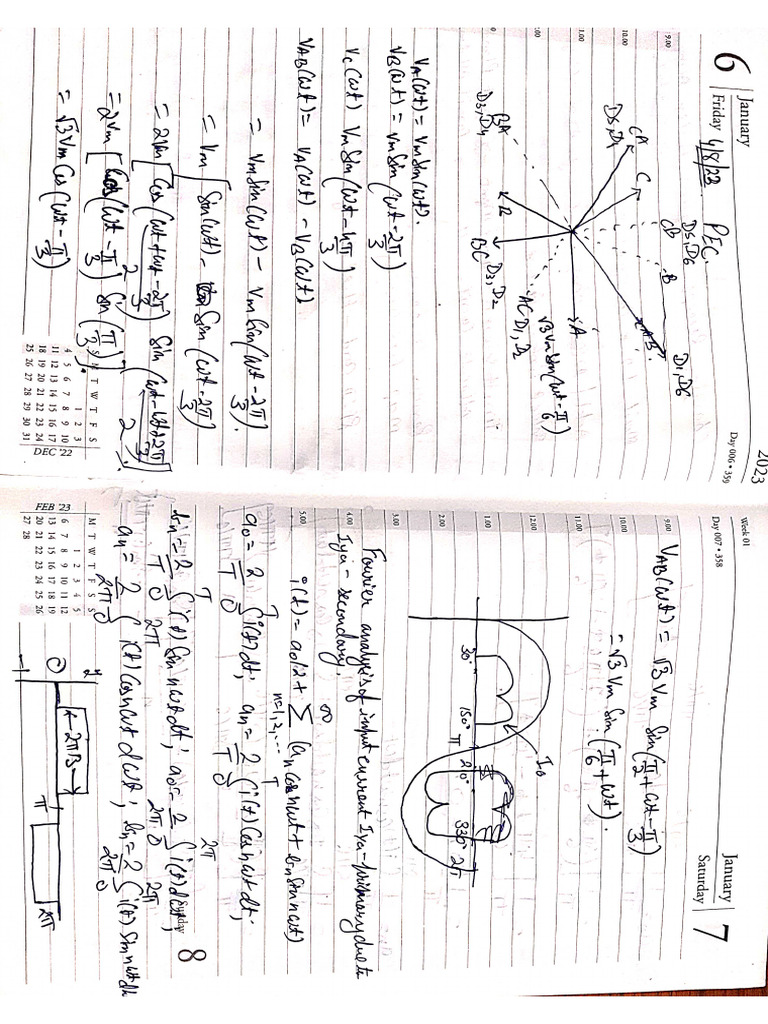 2023
January
6
Friday 4/8/23
PEC.
Day 006 • 359
9.00
10.00
1.00
CA
D5, D4
C
CB
D5, D6
B
AB
D1, D6
A
√3 Vm sin(wt-π/6)
AC D1, D2
D3, D2
BC
B
BA
D3, D4
VA(wt) = Vm sin(wt).
VB(wt) = Vm sin(wt-2π/3)
Vc(wt) Vm sin(wt-4π/3)
VAB(wt) = VA(wt) - VB(wt)
= Vm sin(wt) - Vm sin(wt-2π/3).
= Vm [sin(wt) - sin(wt-2π/3)
= 2Vm [Cos(wt+wt-2π/3 / 2) sin(wt-wt+2π/3 / 2)]
= 2Vm [Cos(wt-π/3) sin(π/3)].
= √3 Vm Cos(wt-π/3)
S M T W T F S
1 2 3
4 5 6 7 8 9 10
11 12 13 14 15 16 17
18 19 20 21 22 23 24
25 26 27 28 29 30 31
DEC '22
Week 01
Day 007 • 358
January
7
Saturday
9.00
10.00
11.00
12.00
1.00
2.00
3.00
4.00
5.00
VAB(wt) = √3 Vm Sin(π/2+wt-π/3)
= √3 Vm Sin(π/6+wt).
Io
30° 150° π 210° 330° 2π
Fourier analysis of input current Iya-primary due to
Iya-secondary.
i(t) = a0/2 + ∞Σn=1,2,... (an cosnwt + bn sinnwt)
a0 = 2/T ∫0T i(t)dt; an = 2/T ∫0T i(t) Cosnwt dt;
bn = 2/T ∫0T i(t) Sin nwt dt; a0 = 2/2π ∫02π i(t)dwt;
an = 2/2π ∫02π i(t) Cosnwt dwt; bn = 2/2π ∫02π i(t) Sin nwt dwt
8
Sunday
0
2πB
π
2π
FEB '23
M T W T F S S
1 2 3 4 5
6 7 8 9 10 11 12
13 14 15 16 17 18 19
20 21 22 23 24 25 26
27 28